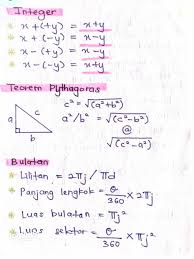 Integer
* x + (+y) = x+y
* x + (-y) = x-y
* x - (+y) = x-y
* x - (-y) = x+y
Teorem Pythagoras
c² = √(a²+b²)
a c
a²/b² = √(c²-b²)
@
b
√(c²-a²)
Bulatan
* Lilitan = 2πj / πd
* Panjang lengkok = θ/360 × 2πj
* Luas bulatan = πj²
* Luas sektor = θ/360 × πj²